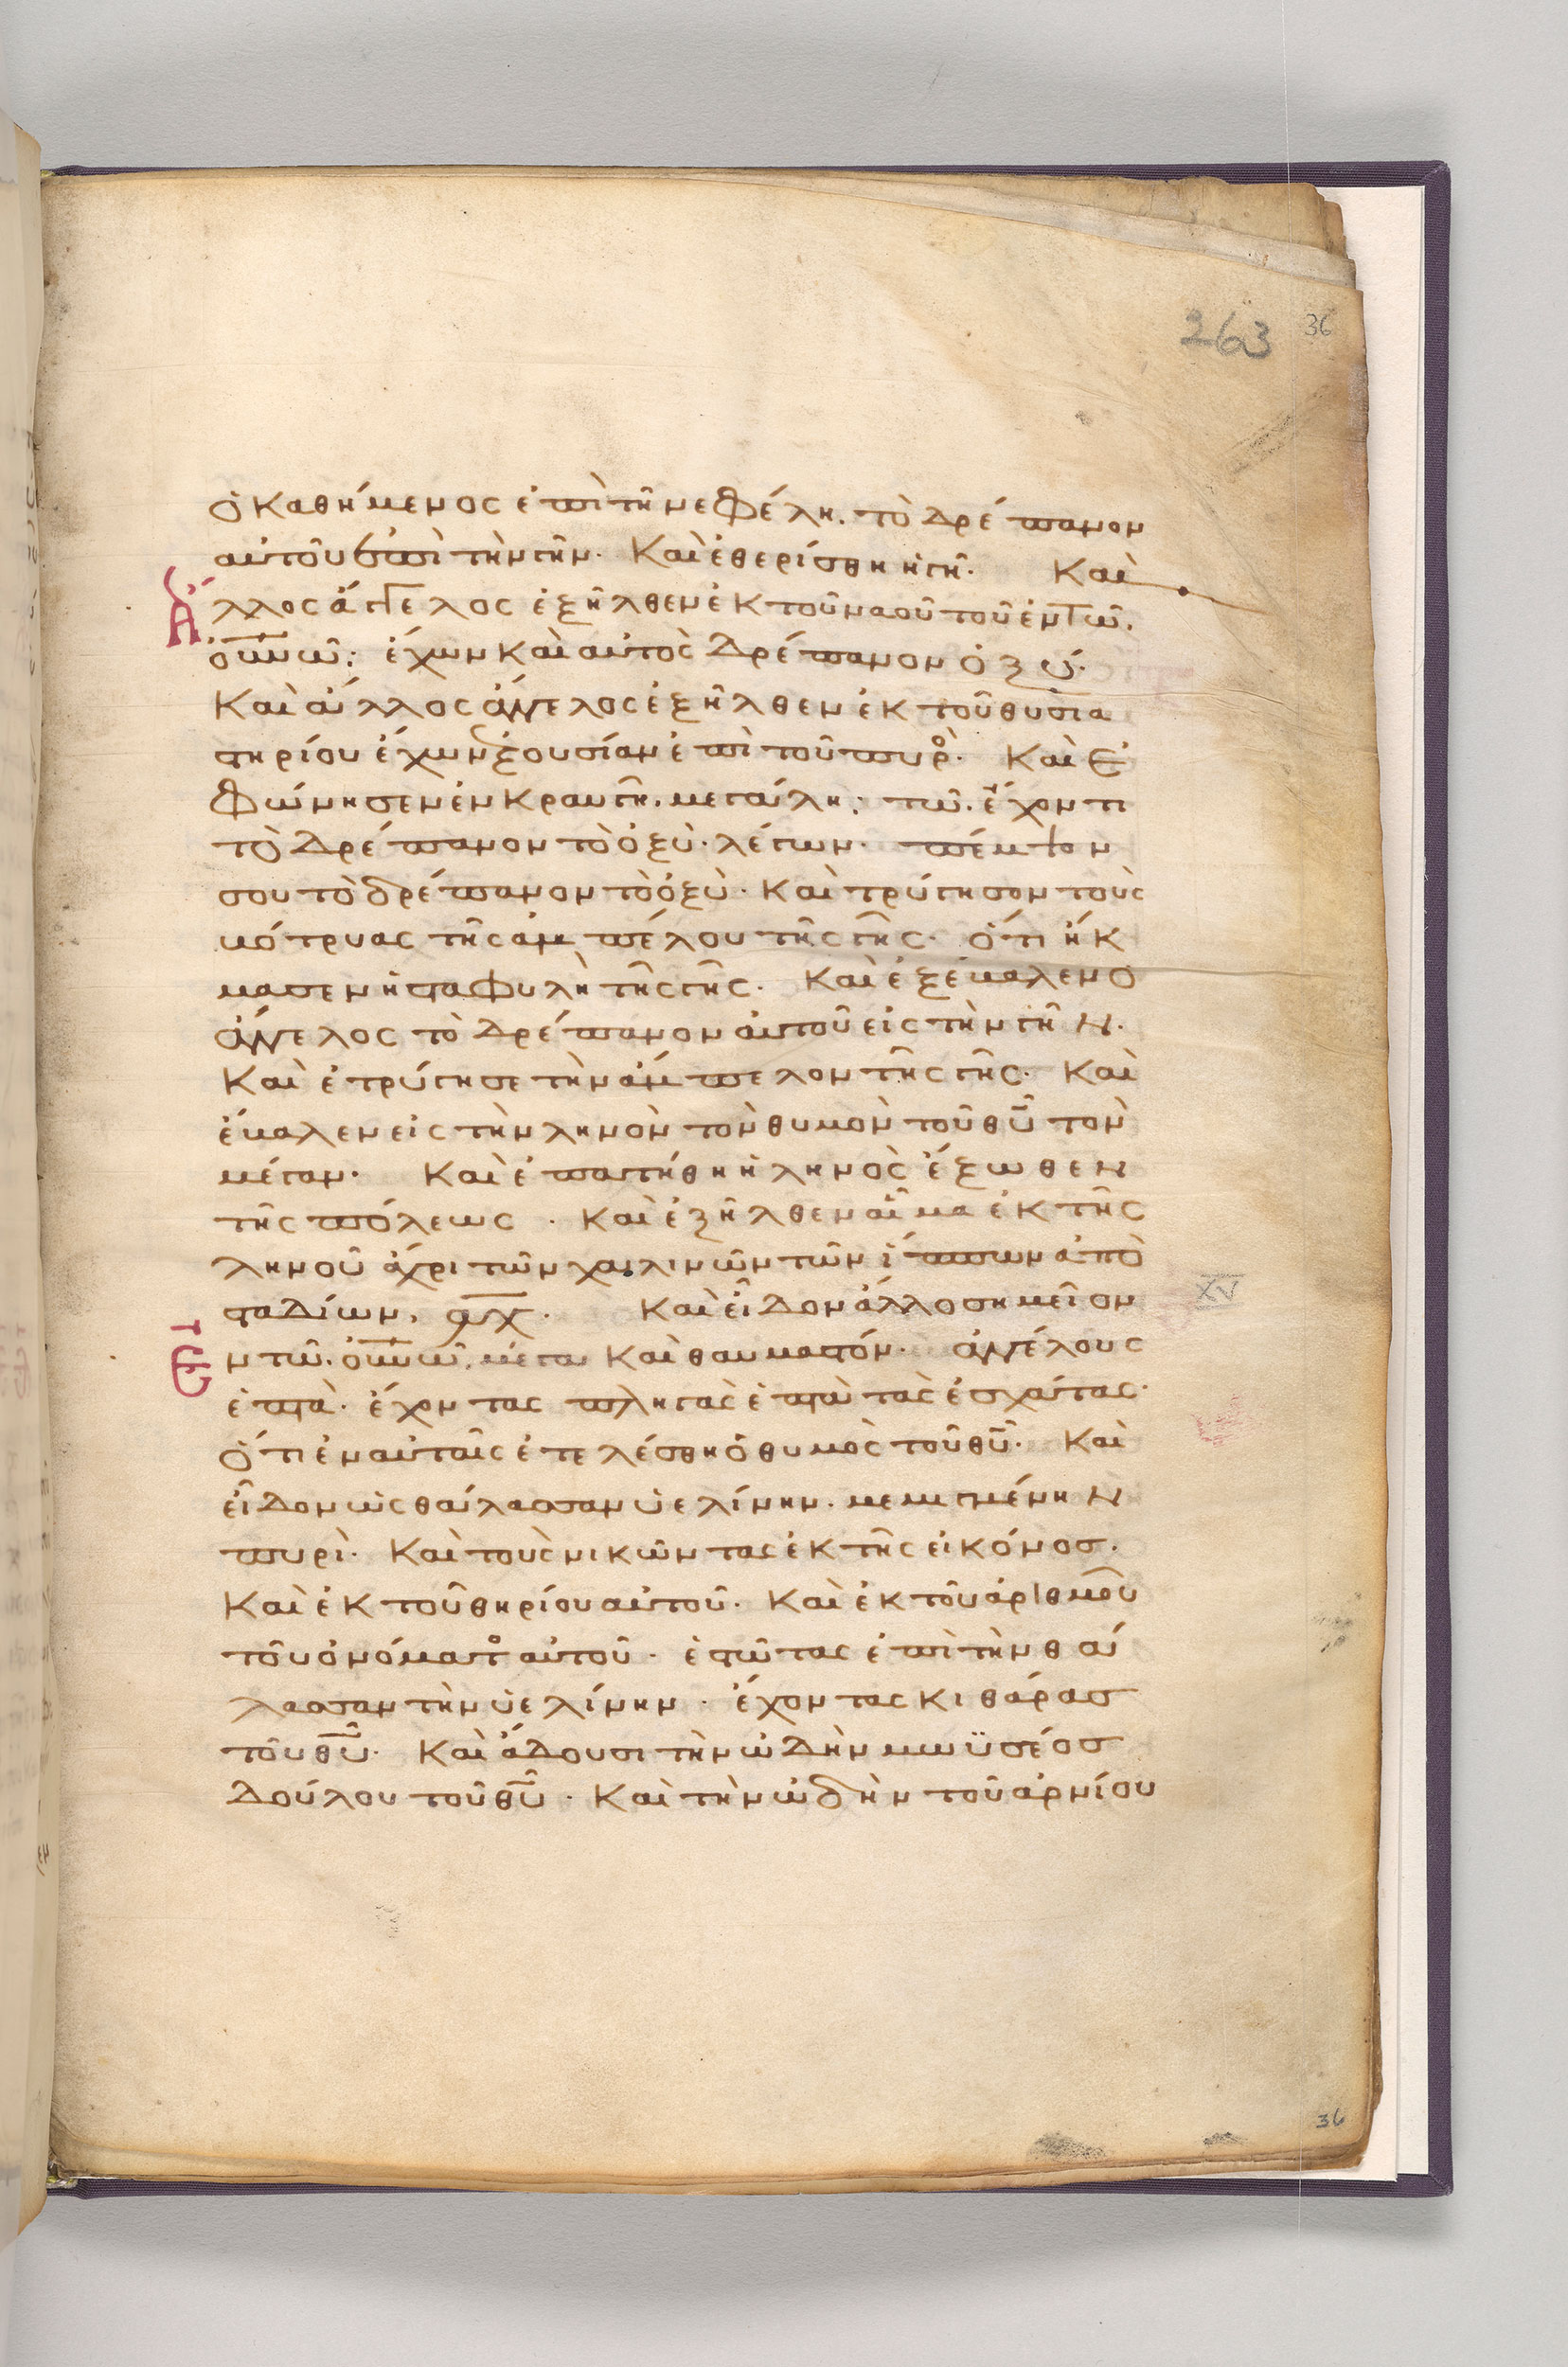 263 36
ὁ καθήμενος ἐπὶ τῆ νεφέλη. τὸ δρέπανον
αὐτοῦ ἐπὶ τὴν γῆν· Καὶ ἐθερίσθη ἡ γῆ· Καὶ
Ἄλλος ἄγγελος ἐξῆλθεν ἐκ τοῦ ναοῦ τοῦ ἐν τῶ.
οὐνῶ· ἔχων καὶ αὐτὸς δρέπανον ὀξύ·
Καὶ ἄλλος ἄγγελος ἐξῆλθεν ἐκ τοῦ θυσια
στηρίου ἔχων ἐξουσίαν ἐπὶ τοῦ πυρὸ· Καὶ ἐ
φώνησεν ἐν κραυγῆ. μεγάλη· τῶ. ἔχοντι
τὸ δρέπανον τὸ ὀξὺ· λέγων· πέμψον
σου τὸ δρέπανον τὸ ὀξὺ· Καὶ τρύγησον τοὺς
βότρυας τῆς ἀμπέλου τῆς γῆς· ὅτι ἤκ
μασεν ἡ σταφυλὴ τῆς γῆς· Καὶ ἐξέβαλεν ὁ
ἄγγελος τὸ δρέπανον αὐτοῦ εἰς τὴν γῆν·
Καὶ ἐτρύγησε τὴν ἄμπελον τῆς γῆς· Καὶ
ἔβαλεν εἰς τὴν ληνὸν τὸν θυμὸν τοῦ θυ τὸν
μέγαν· Καὶ ἐπατήθη ἡ ληνὸς ἔξωθεν
τῆς πόλεως · Καὶ ἐξῆλθεν αἷμα ἐκ τῆς
ληνοῦ ἄχρι τῶν χαλινῶν τῶν ἵππων ἀπὸ
σταδίων, αχ· Καὶ εἶδον ἄλλο σημεῖον
XV
ἐν τῶ. οὐνῶ, μέγα Καὶ θαυμαστόν· ἀγγέλους
ἑπτὰ· ἔχοντας πληγὰς ἑπτὰ τὰς ἐσχάτας·
ὅτι ἐν αὐταῖς ἐτελέσθη ὁ θυμὸς τοῦ θυ· Καὶ
εἶδον ὡς θάλασσαν ὑελίνην. μεμιγμένην
πυρὶ· Καὶ τοὺς νικῶντας ἐκ τῆς εἰκόνος·
Καὶ ἐκ τοῦ θηρίου αὐτοῦ· Καὶ ἐκ τοῦ ἀριθμοῦ
τοῦ ὀνόματο αὐτοῦ· ἑστῶτας ἐπὶ τὴν θά
λασσαν τὴν ὑελίνην· ἔχοντας κιθάρας
τοῦ θυ· Καὶ ἄδουσι τὴν ὠδὴν μωϋσέος
δούλου τοῦ θυ· Καὶ τὴν ὠδὴν τοῦ ἀρνίου
36